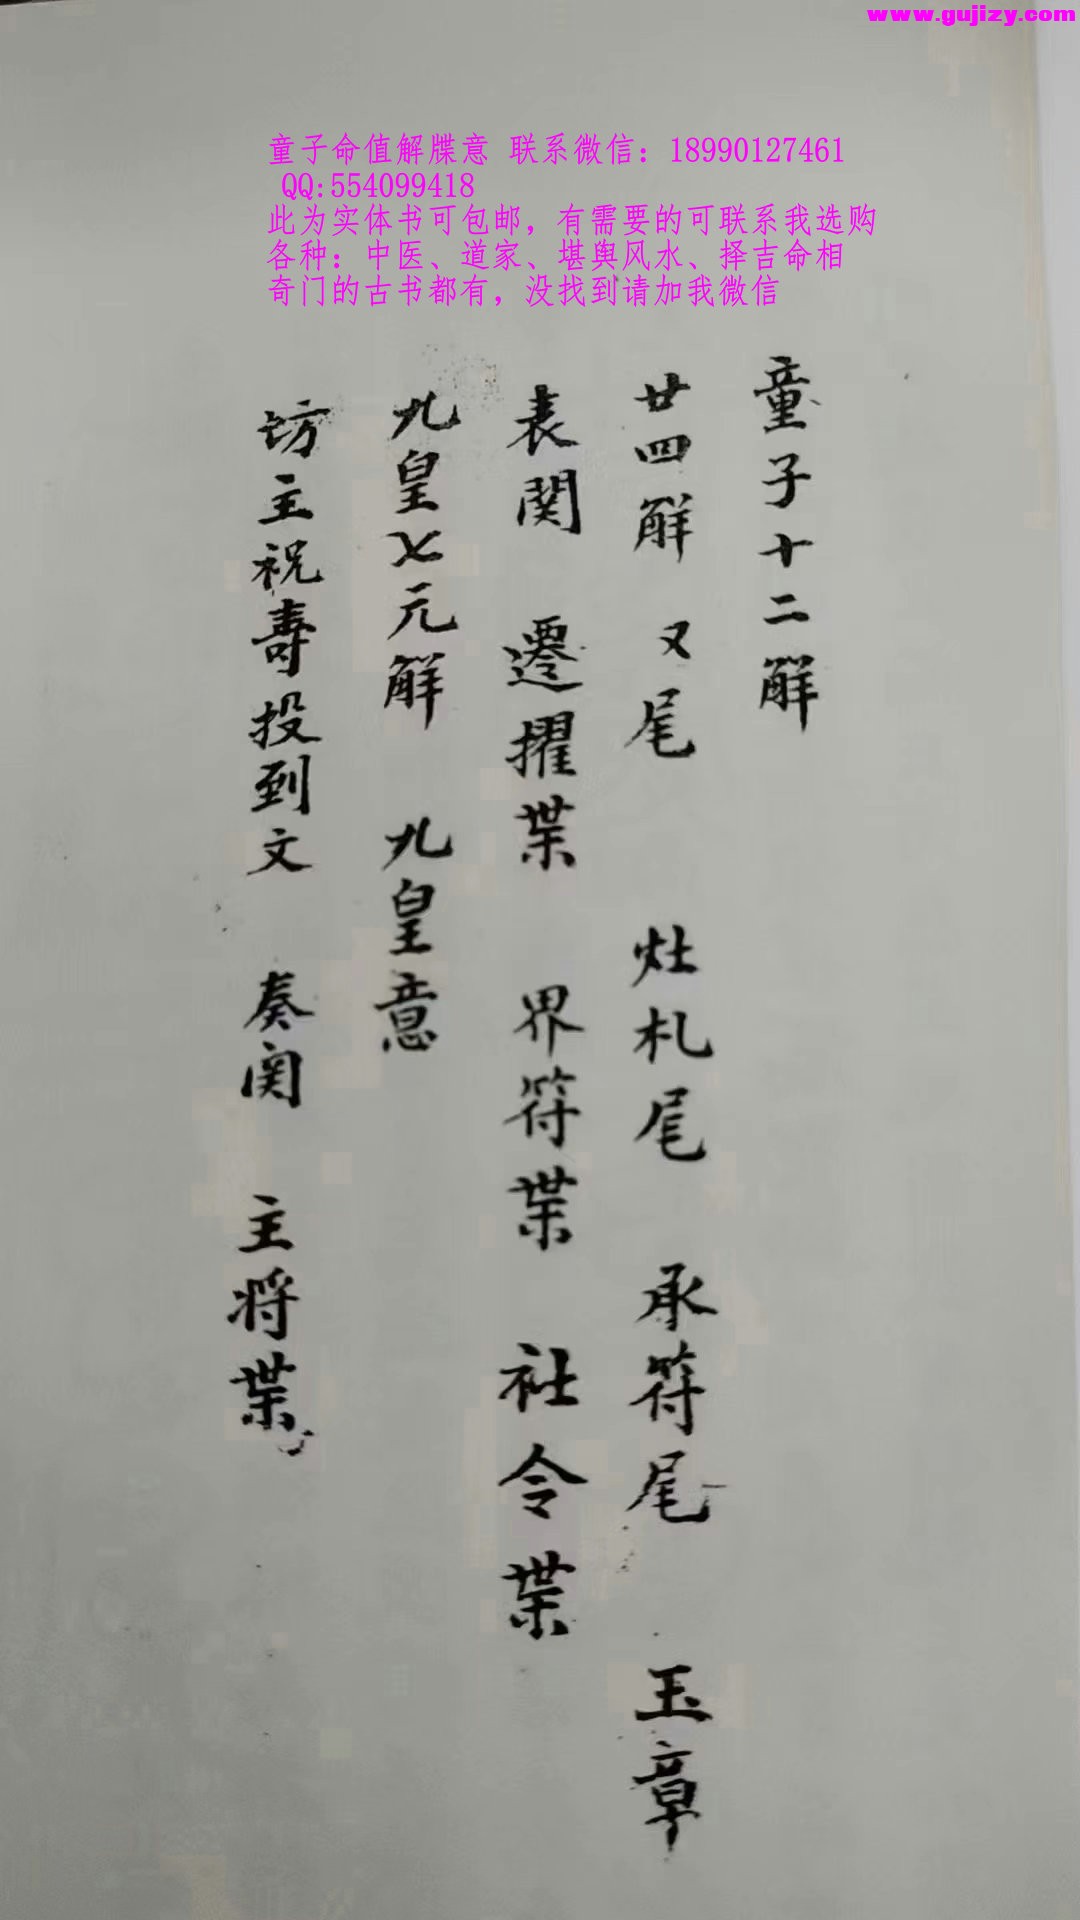 www.gujizy.com
童子命值解牒意 联系微信：18990127461
QQ:554099418
此为实体书可包邮，有需要的可联系我选购
各种：中医、道家、堪舆风水、择吉命相
奇门的古书都有，没找到请加我微信
童子十二解
廿四解 又尾 灶札尾 承符尾 玉章
表関 遷擢枼 界符枼 社令枼
九皇七元解 九皇意
访主祝寿投到文 奏関 主将枼